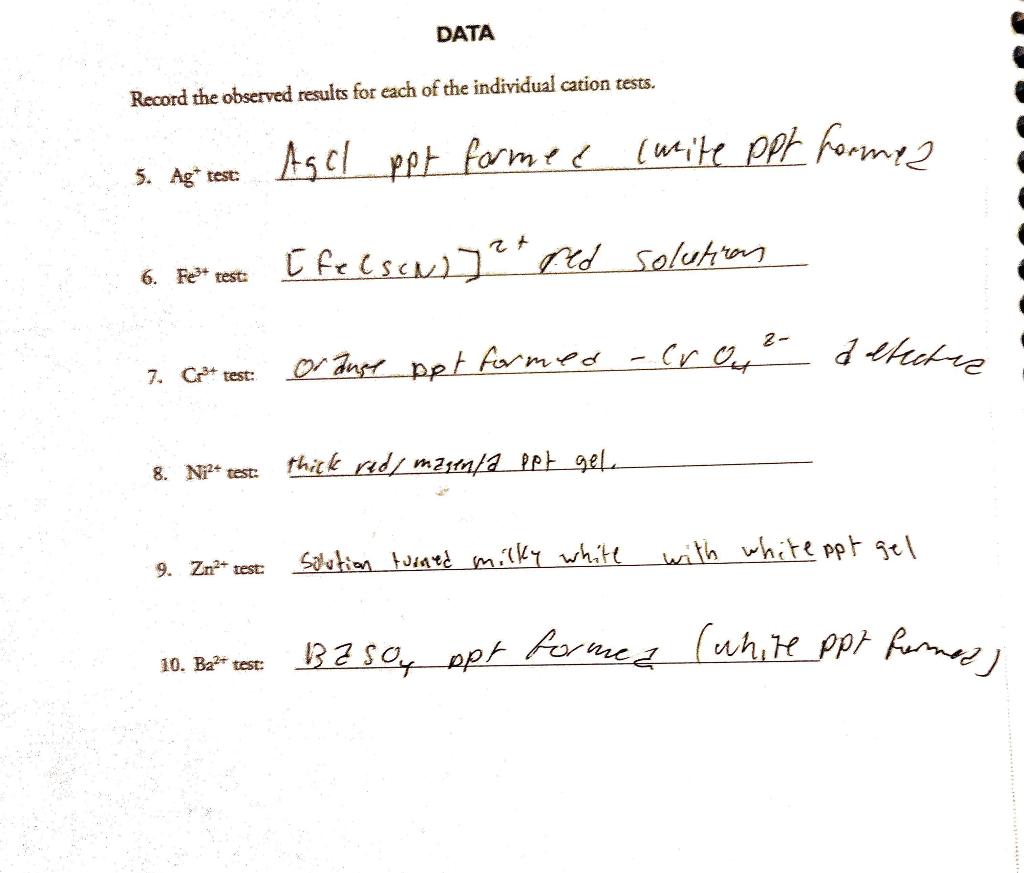 DATA
Record the observed results for each of the individual cation tests.
5. Ag⁺ test: AgCl ppt formed (white ppt formed
6. Fe³⁺ test: [Fe(SCN)]²⁺ red solution
7. Cr³⁺ test: orange ppt formed - CrO₄²⁻ detected
8. Ni²⁺ test: thick red/magenta ppt gel.
9. Zn²⁺ test: Solution turned milky white with white ppt gel
10. Ba²⁺ test: BaSO₄ ppt formed (white ppt formed)